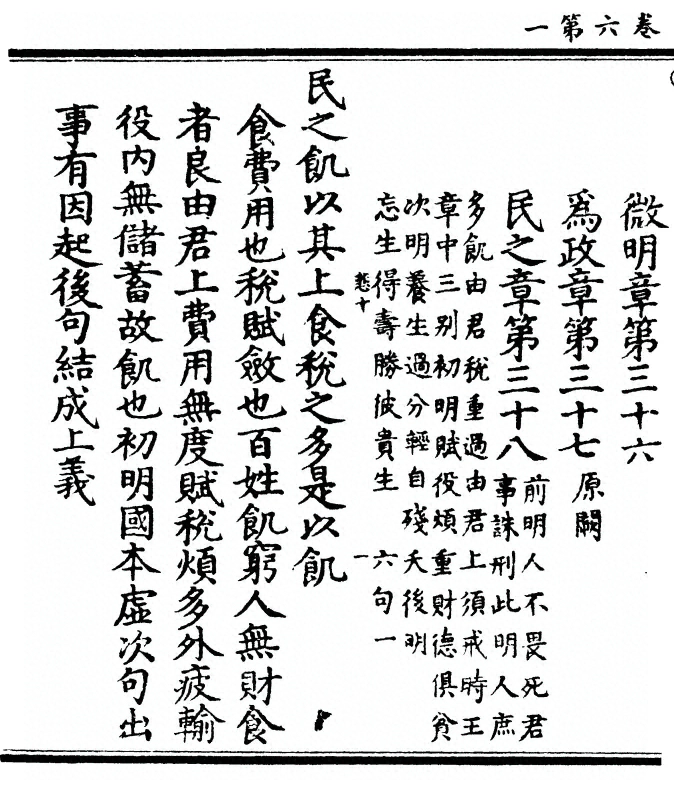 卷六第一
微明章第三十六
爲政章第三十七 原闕
民之章第三十八
前明人不畏死君
事誅刑此明人庶
多飢由君稅重過由君上須戒時王
章中三別初明賦役煩重財德俱貧
次明養生過分輕自殘夭後明
忘生得壽勝彼貴生 六句一
民之飢以其上食稅之多是以飢
食費用也稅賦斂也百姓飢窮人無財食
者良由君上費用無度賦稅煩多外疲輸
役内無儲蓄故飢也初明國本虛次句出
事有因起後句結成上義